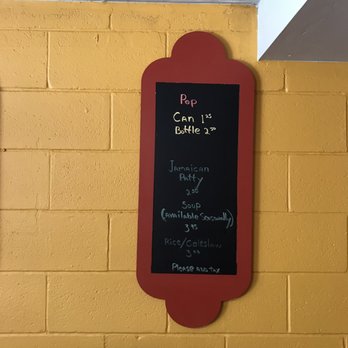 Pop
Can 1.25
Bottle 2.50
Jamaican
Patty
2.00
Soup
(Available Seasonally)
3.95
Rice/Coleslaw
Please add tax